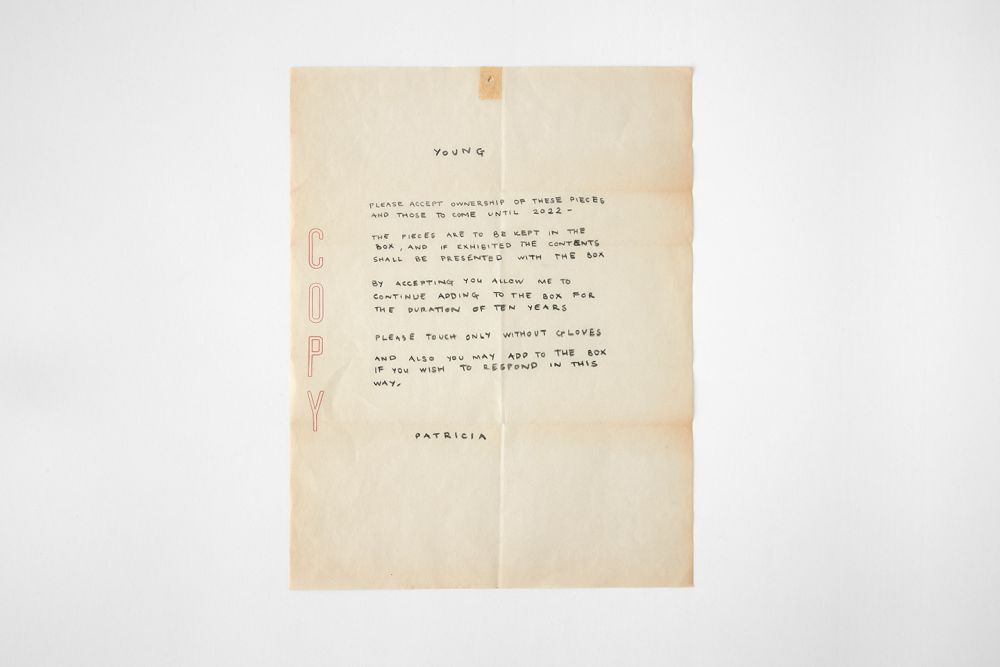 YOUNG
PLEASE ACCEPT OWNERSHIP OF THESE PIECES
AND THOSE TO COME UNTIL 2022 -
THE PIECES ARE TO BE KEPT IN THE
BOX, AND IF EXHIBITED THE CONTENTS
SHALL BE PRESENTED WITH THE BOX
BY ACCEPTING YOU ALLOW ME TO
CONTINUE ADDING TO THE BOX FOR
THE DURATION OF TEN YEARS
PLEASE TOUCH ONLY WITHOUT GLOVES
AND ALSO YOU MAY ADD TO THE BOX
IF YOU WISH TO RESPOND IN THIS
WAY.
PATRICIA
COPY